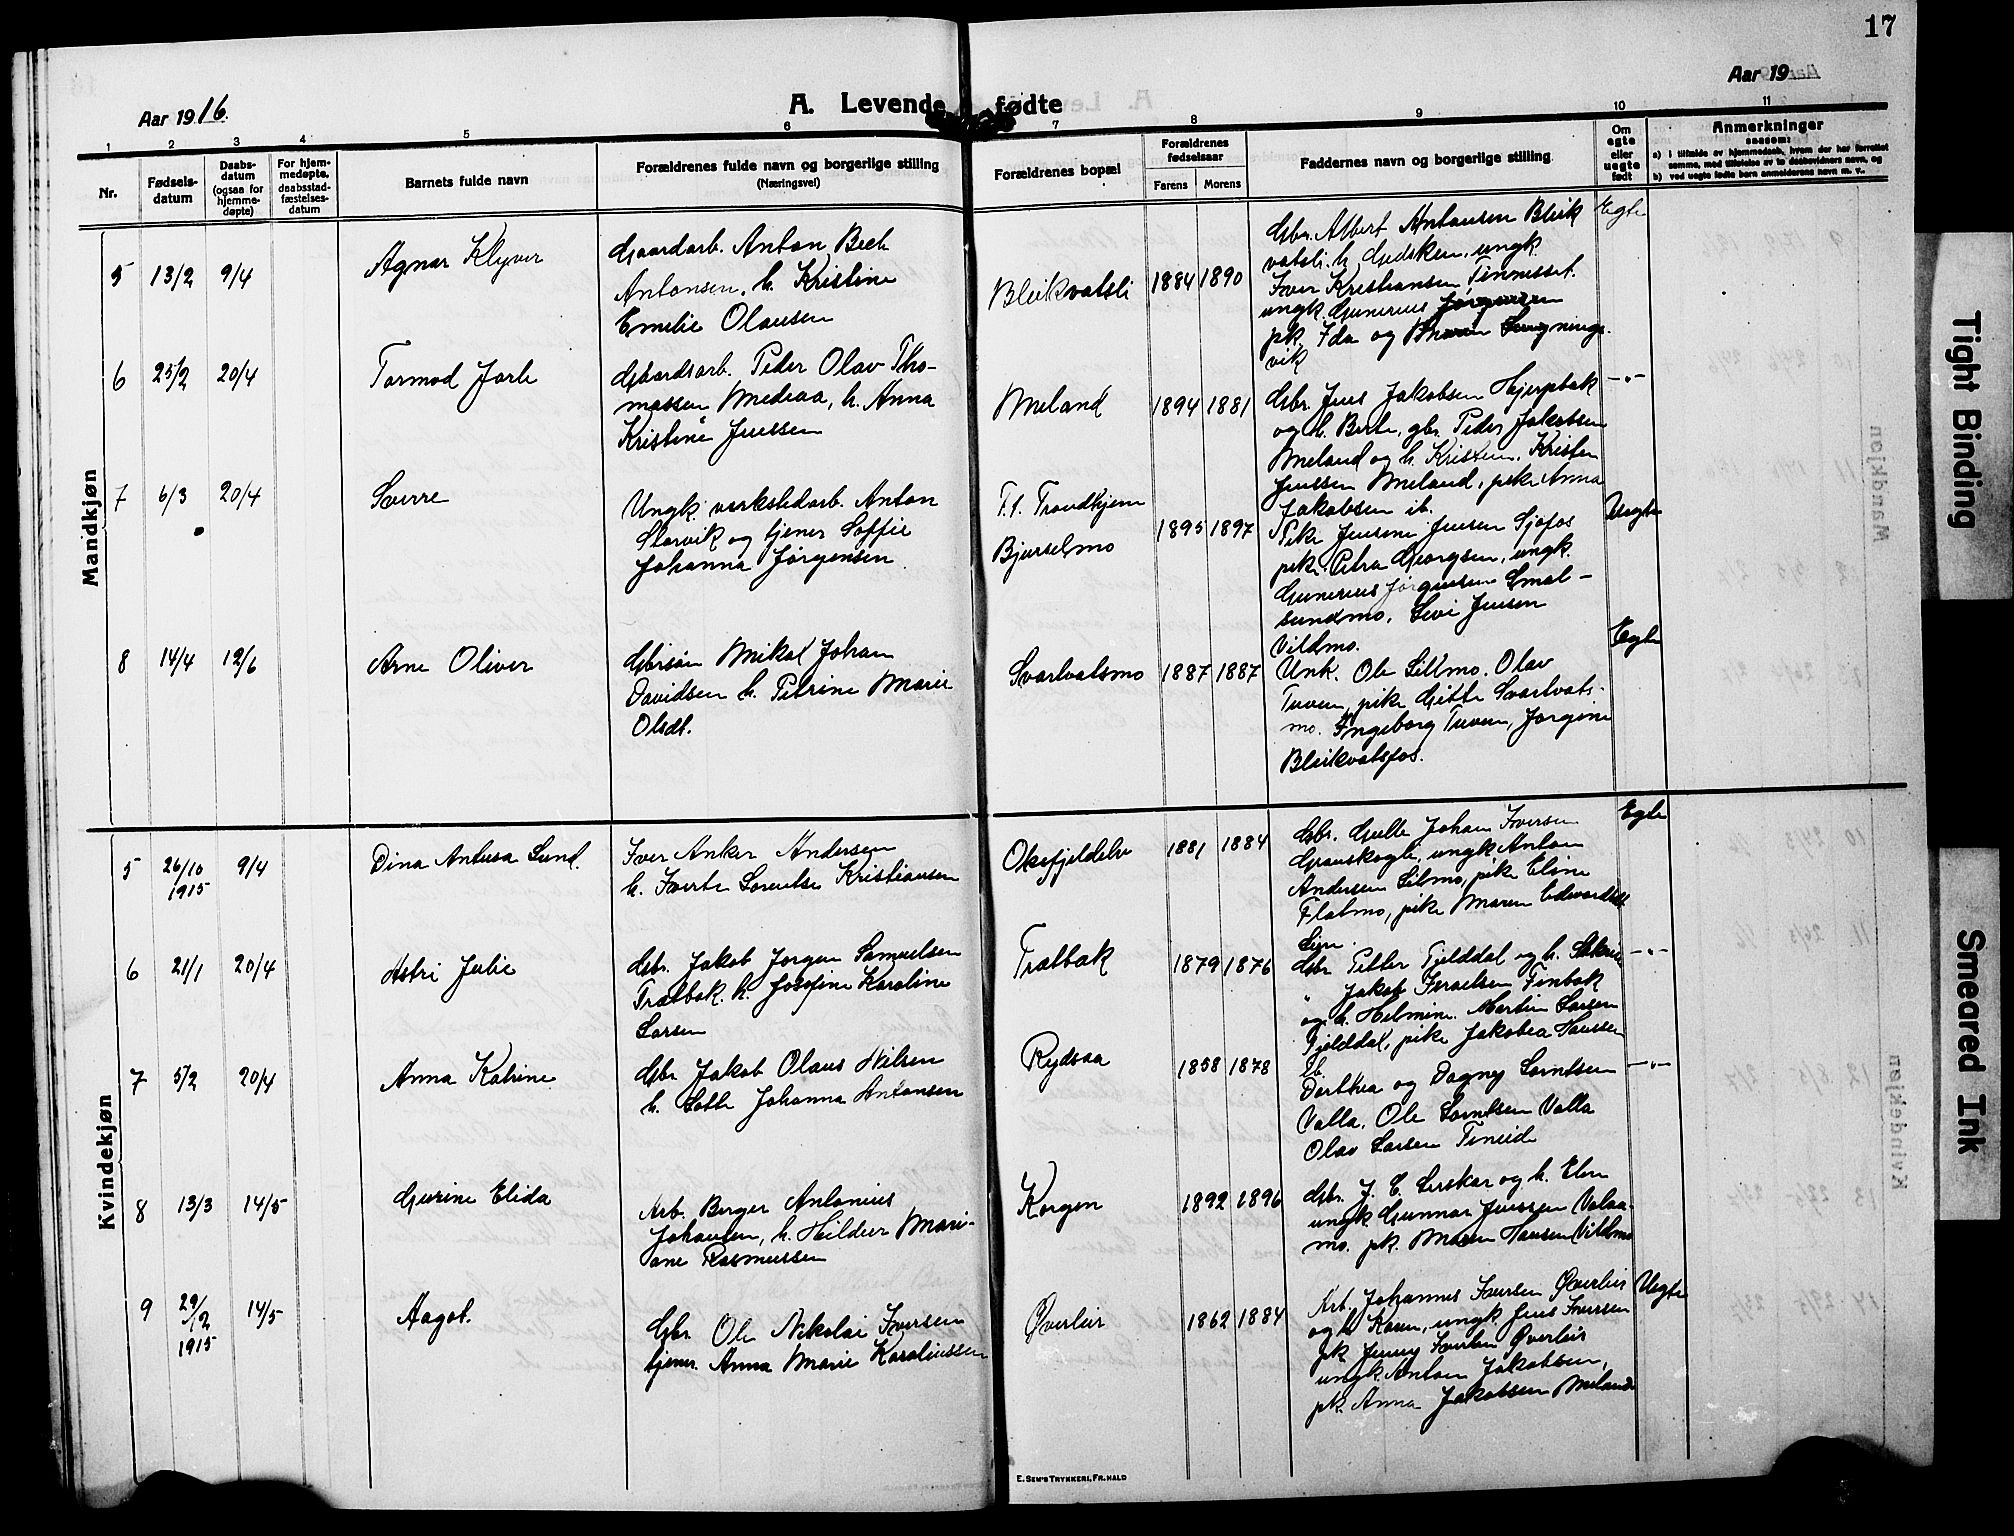 17
Aar 1916.
A. Levende fødte
Aar 19
1 2 3 4 5 6 7 8 9 10 11
Nr.
Fødsels-datum
Daabs-datum (ogsaa for hjemme-døpte)
For hjem-medøpte, daabsstad-fæstelses-datum
Barnets fulde navn
Forældrenes fulde navn og borgerlige stilling
(Næringsvei)
Forældrenes bopæl
Forældrenes fødselsaar
Farens Morens
Faddernes navn og borgerlige stilling
Om egte eller uegte født
Anmerkninger
saasom:
a) i tilfælde av hjemmedaab, hvem der har forrettet samme, med tilføielse av to daabsvidners navn, og
b) ved uegte fødte barn anmelderens navn m. v.
Mandkjøn
5 13/2 9/4 Agnar Klyver
Gaardarb. Anton Beck
Antonsen, h. Kristine
Emelie Olausen
Bleikvatsli 1884 1890
Gbr. Albert Antonsen Bleik
vatsli. h. Gjedsken, ungk.
Iver Kristiansen Tinnesset.
ungk. Gunerius Jørgensen
pk. Ida og Maren
vik
Egte
6 25/2 20/4 Tormod Jarle
Gbardsarb. Peder Olav Tho-
massen Medeaa, h. Anna
Kristine Jenssen
Meland 1894 1881
Gbr. Jens Jakobsen Hjerpbak
og h. Berte, gbr. Peder Jakobsen
Meland og h. Kristine. Kristen
Jenssen Meland, pike Anna
Jakobsen ib.
—"—
7 6/3 20/4 Sverre
Ungk. verkstedarb. Anton
Storvik og tjener Soffie
Johanna Jørgensen
T.t. Trondhjem
Bjurselmo
1895 1897
Pike Jensine Jensen Sjøfos
pike Petra Georgsen, ungk.
Gunerius Jørgensen Smal-
sundmo. Levi Jensen
Vildmo.
Uegte
8 14/4 12/6 Arne Oliver
Gbrsøn Mikal Johan
Davidsen h. Petrine Marie
Olsdt.
Svartvatsmo 1887 1887
Unk. Ole Lillmo. Olav
Tuven, pike Gitte Svartvats-
mo. Ingeborg Tuven, Jørgine
Bleikvatsfos.
Egte
Kvindekjøn
5 26/10 1915 9/4 Dina Antusa Lund.
Iver Anker Andersen
h. Iverte Lorentse Kristiansen
Oksfjeldelv 1881 1884
Gbr. Gulle Johan Iversen
Granskogli, ungk Anton
Andersen Lilmo, pike Eline
Flatmo, pike Maren Edvardsdt
Egte
6 21/1 20/4 Astri Julie
Gbr. Jakob Jørgen Samuelsen
Tratbak. h. Josefine Karoline
Larsen
Tratbak 1879 1876
Gbr Petter Fjelddal og h.
" Jakob Israelsen Finbak
og h. Helmine. Martin Larsen
Fjelddal, pike Jakobea Hanssen
ib.
—"—
7 5/2 20/4 Anna Katrine
Gbr Jakob Olaus Nilsen
h. Lotte Johanna Antonsen
Rydsaa 1858 1878
Dorthea og Dagny Lorntsen
Valla. Ole Lorntsen Valla
Olav Larsen Tineid
—"—
8 13/3 14/5 Gurine Elida
Arb. Berger Antonius
Johansen, h. Hildur Mari-
ane Rasmussen
Korgen 1892 1896
Gbr. J. C. Lerskar og h. Elen
ungk Gunnar Jenssen Valaa-
mo. pk. Maren Hansen Vildmo
9 29/12 1915 14/5 Aagot.
Gbr Ole Nikolai Iversen
tjener Anna Marie Karoliussen
Øverleir 1862 1884
Arb. Johannes Iversen Øverleir
og h Karen, ungk Jens Iversen
pk Jenny Iversen Øverleir
ungk Anton Jakobsen,
pk. Anna Jakobsen Meland
Uegte
E. Sem's Trykkeri, Fr.hald
Tight Binding
Smeared Ink